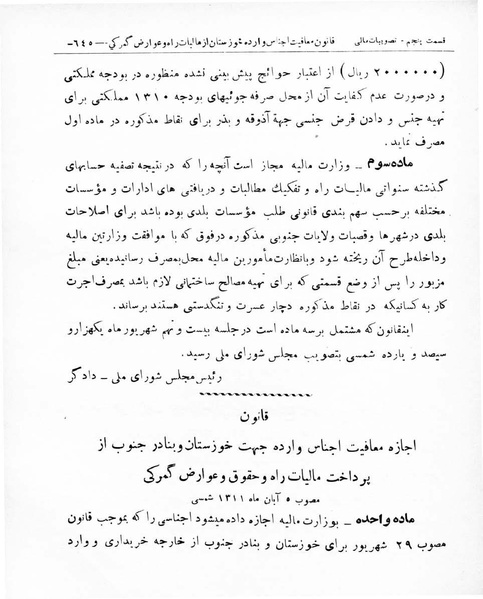 قسمت پنجم - تصویبات مالی     قانون معافیت اجناس وارده خوزستان از مالیات راه و عوارض گمرکی ... -٦٤٥-
(٢٠٠٠٠٠٠ ریال) از اعتبار حوائج پیش بینی نشده منظوره در بودجه مملکتی
و درصورت عدم کفایت آن از محل صرفه جوئیهای بودجه ١٣١٠ مملکتی برای
تهیه جنس و دادن قرض جنسی جهة آذوقه و بذر برای نقاط مذکوره در ماده اول
مصرف نماید.
ماده سوم ـ وزارت مالیه مجاز است آنچه را که در نتیجه تصفیه حسابهای
گذشته سنواتی مالیات راه و تفکیك مطالبات و دریافتی های ادارات و مؤسسات
مختلفه برحسب سهم بندی قانونی طلب مؤسسات بلدی بوده باشد برای اصلاحات
بلدی در شهرها و قصبات ولایات جنوبی مذکوره در فوق که با موافقت وزارتین مالیه
و داخله طرح آن ریخته شود و با نظارت مأمورین مالیه محل بمصرف رسانیده یعنی مبلغ
مزبور را پس از وضع قسمتی که برای تهیه مصالح ساختمانی لازم باشد بمصرف اجرت
کار به کسانیکه در نقاط مذکوره دچار عسرت و تنگدستی هستند برساند.
اینقانون که مشتمل برسه ماده است در جلسه بیست و نهم شهریور ماه یکهزار و
سیصد و یازده شمسی بتصویب مجلس شورای ملی رسید.
رئیس مجلس شورای ملی ـ دادگر
قانون
اجازه معافیت اجناس وارده جهت خوزستان و بنادر جنوب از
پرداخت مالیات راه و حقوق و عوارض گمرکی
مصوب ٥ آبان ماه ١٣١١ شمسی
ماده واحده ـ بوزارت مالیه اجازه داده میشود اجناسی را که بموجب قانون
مصوب ٢٩ شهریور برای خوزستان و بنادر جنوب از خارجه خریداری و وارد